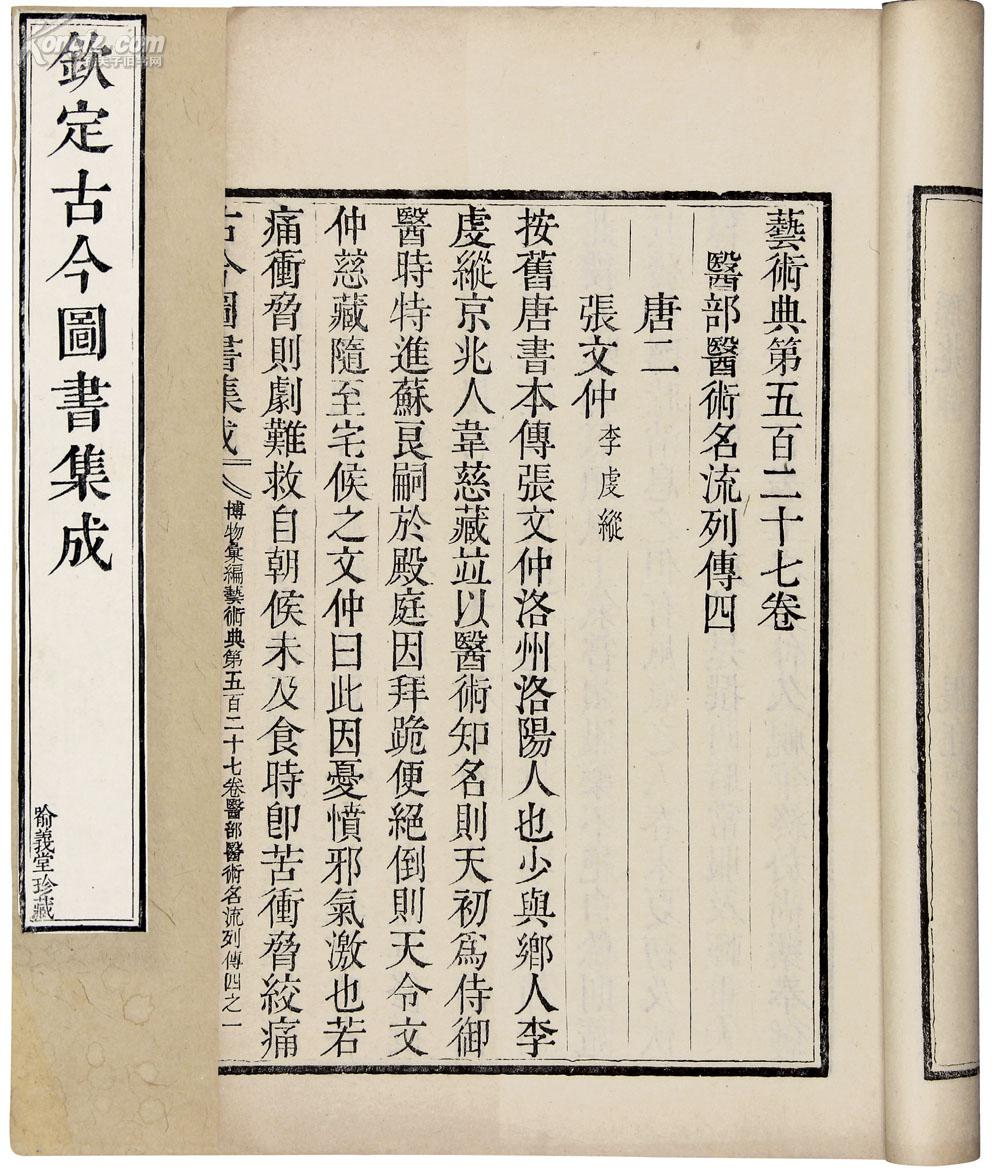 欽定古今圖書集成
喻義堂珍藏
藝術典第五百二十七卷
醫部醫術名流列傳四
唐二
張文仲 李虔縱
按舊唐書本傳張文仲洛州洛陽人也少與鄉人李
虔縱京兆人韋慈藏並以醫術知名則天初爲侍御
醫時特進蘇良嗣於殿庭因拜跪便絕倒則天令文
仲慈藏隨至宅候之文仲曰此因憂憤邪氣激也若
痛衝脅則劇難救自朝候未及食時卽苦衝脅絞痛
古今圖書集成 博物彙編藝術典第五百二十七卷醫部醫術名流列傳四之一
Kongfz.com
孔夫子旧书网